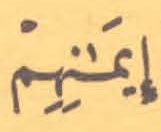 إِيمَـٰنِهِمْ